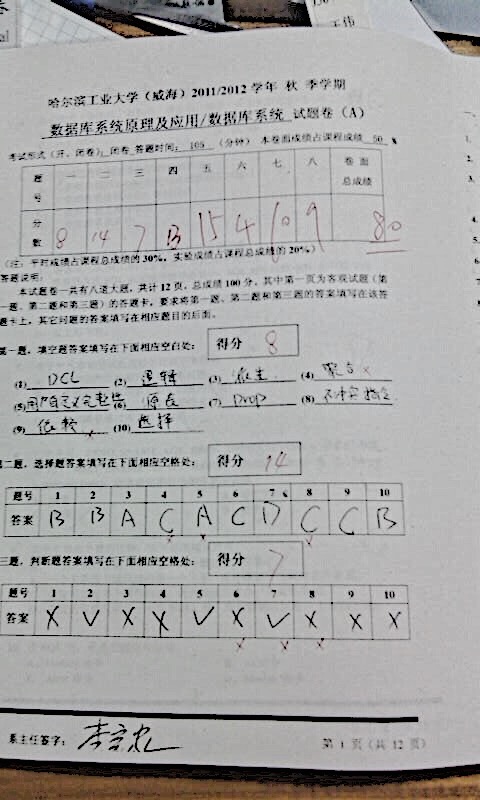 哈尔滨工业大学（威海）2011/2012 学年 秋 季学期
数据库系统原理及应用/数据库系统 试题卷（A）
考试形式（开、闭卷）：闭卷 答题时间：105 （分钟） 本卷面成绩占课程成绩 50 %
题号 一 二 三 四 五 六 七 八 卷面总成绩
分数 8 14 7 13 15 4 10 9 80
（注：平时成绩占课程总成绩的30%，实验成绩占课程总成绩的20%）
答题说明：
本试题卷一共有八道大题，共计12页，总成绩100分，其中第一页为客观试题（第
一题、第二题和第三题）的答题卡，要求将第一题、第二题和第三题的答案填写在该答
题卡上，其它问题的答案填写在相应题目的后面。
第一题，填空题答案填写在下面相应空白处： 得分 8
(1) DCL (2) 逻辑 (3) (4)
(5) 用户自定义完整性 (6) (7) Drop (8)
(9) 依赖 (10) 选择
第二题，选择题答案填写在下面相应空格处： 得分 14
题号 1 2 3 4 5 6 7 8 9 10
答案 B B A C A C D C C B
三题，判断题答案填写在下面相应空格处： 得分 7
题号 1 2 3 4 5 6 7 8 9 10
答案 X V X X V X V X X X
系主任签字：
第 1 页（共 12 页）